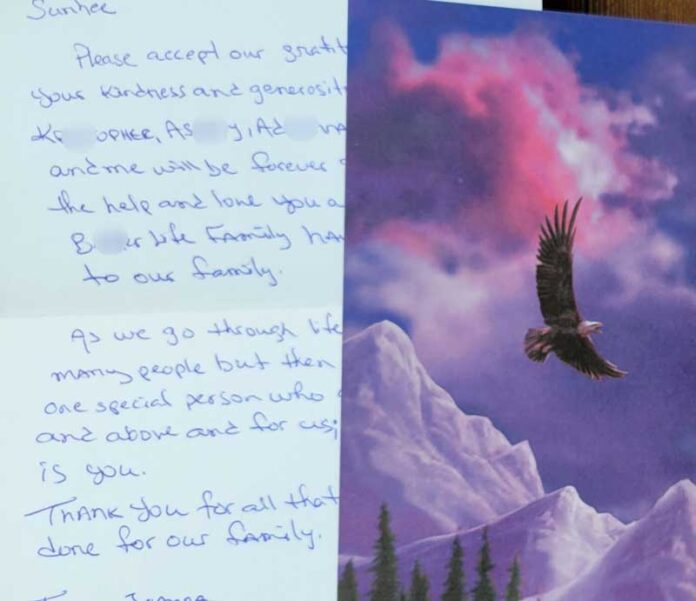 Sunhee
Please accept our gratit
your kindness and generosit
OPHER, As y, Ad na
and me will be forever
the help and love you a
B er Life Family ha
to our family.
As we go through life
many people but then
one special person who
and above and for us;
is you.
Thank you for all that
done for our family.